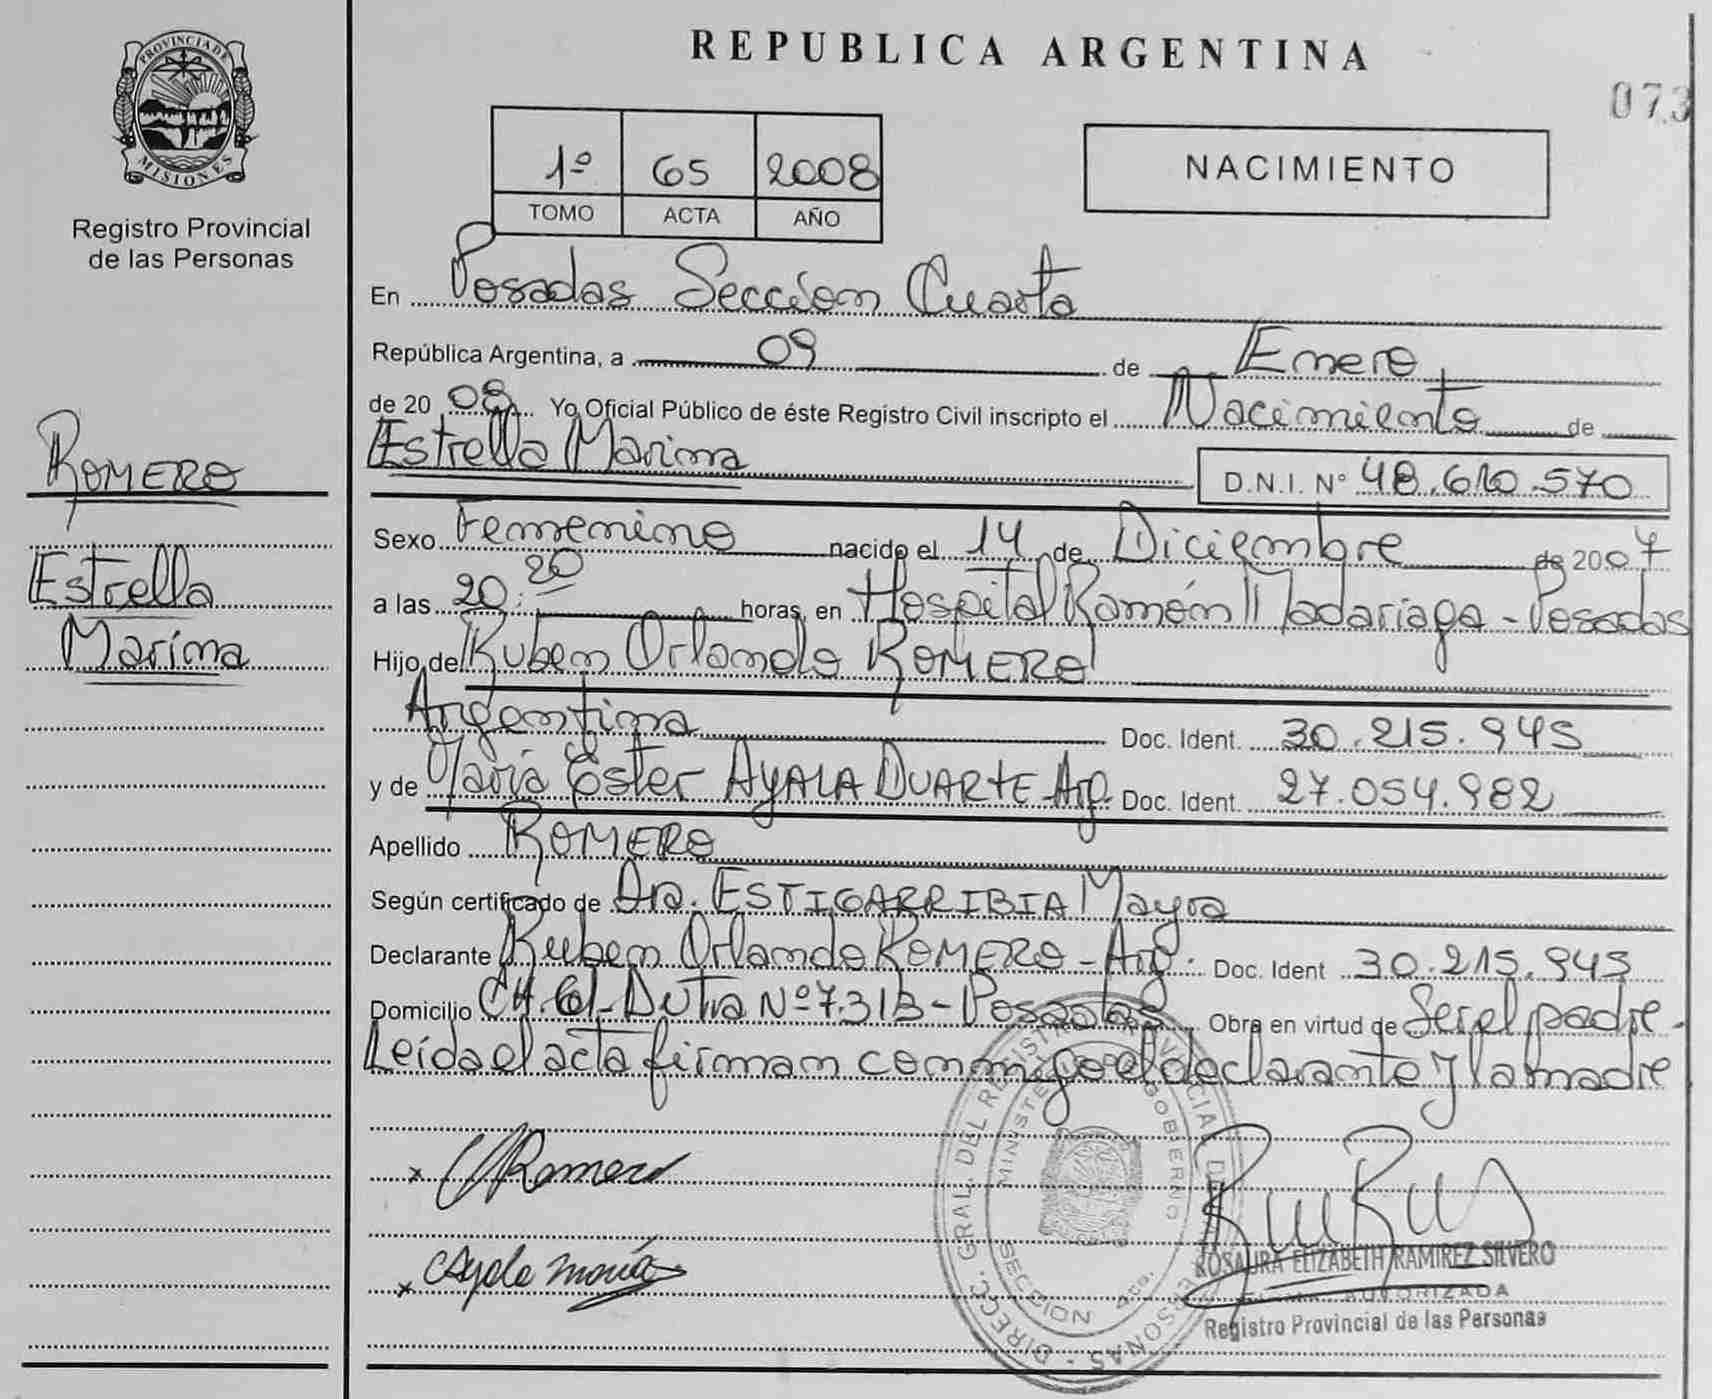 PROVINCIA DE
MISIONES
Registro Provincial
de las Personas
ROMERO
Estrella
Marina
REPUBLICA ARGENTINA
073
1º 65 2008
TOMO ACTA AÑO
NACIMIENTO
En Posadas Sección Cuarta
República Argentina, a 09 de Enero
de 20 08 Yo Oficial Público de éste Registro Civil inscripto el Nacimiento de
Estrella Marina D.N.I. Nº 48.610.570
Sexo Femenino nacido el 14 de Diciembre de 2007
a las 20:20 horas, en Hospital Ramón Madariaga - Posadas
Hijo de Ruben Orlando ROMERO
Argentina Doc. Ident. 30.215.945
y de María Ester AYALA DUARTE - Arg. Doc. Ident. 27.054.982
Apellido ROMERO
Según certificado de Dra. ESTIGARRIBIA Mayra
Declarante Ruben Orlando ROMERO - Arg. Doc. Ident 30.215.945
Domicilio CH. Dutra Nº 7313 - Posadas Obra en virtud de Ser el padre -
Leída el acta firman conmigo el declarante y la madre
x Romero
x Ayala María
DIRECC. GRAL. DEL REGISTRO PROVINCIAL DE LAS PERSONAS
MINISTERIO DE GOBIERNO
SECCION 4ta.
ROSAURA ELIZABETH RAMIREZ SILVERO
FIRMA AUTORIZADA
Registro Provincial de las Personas